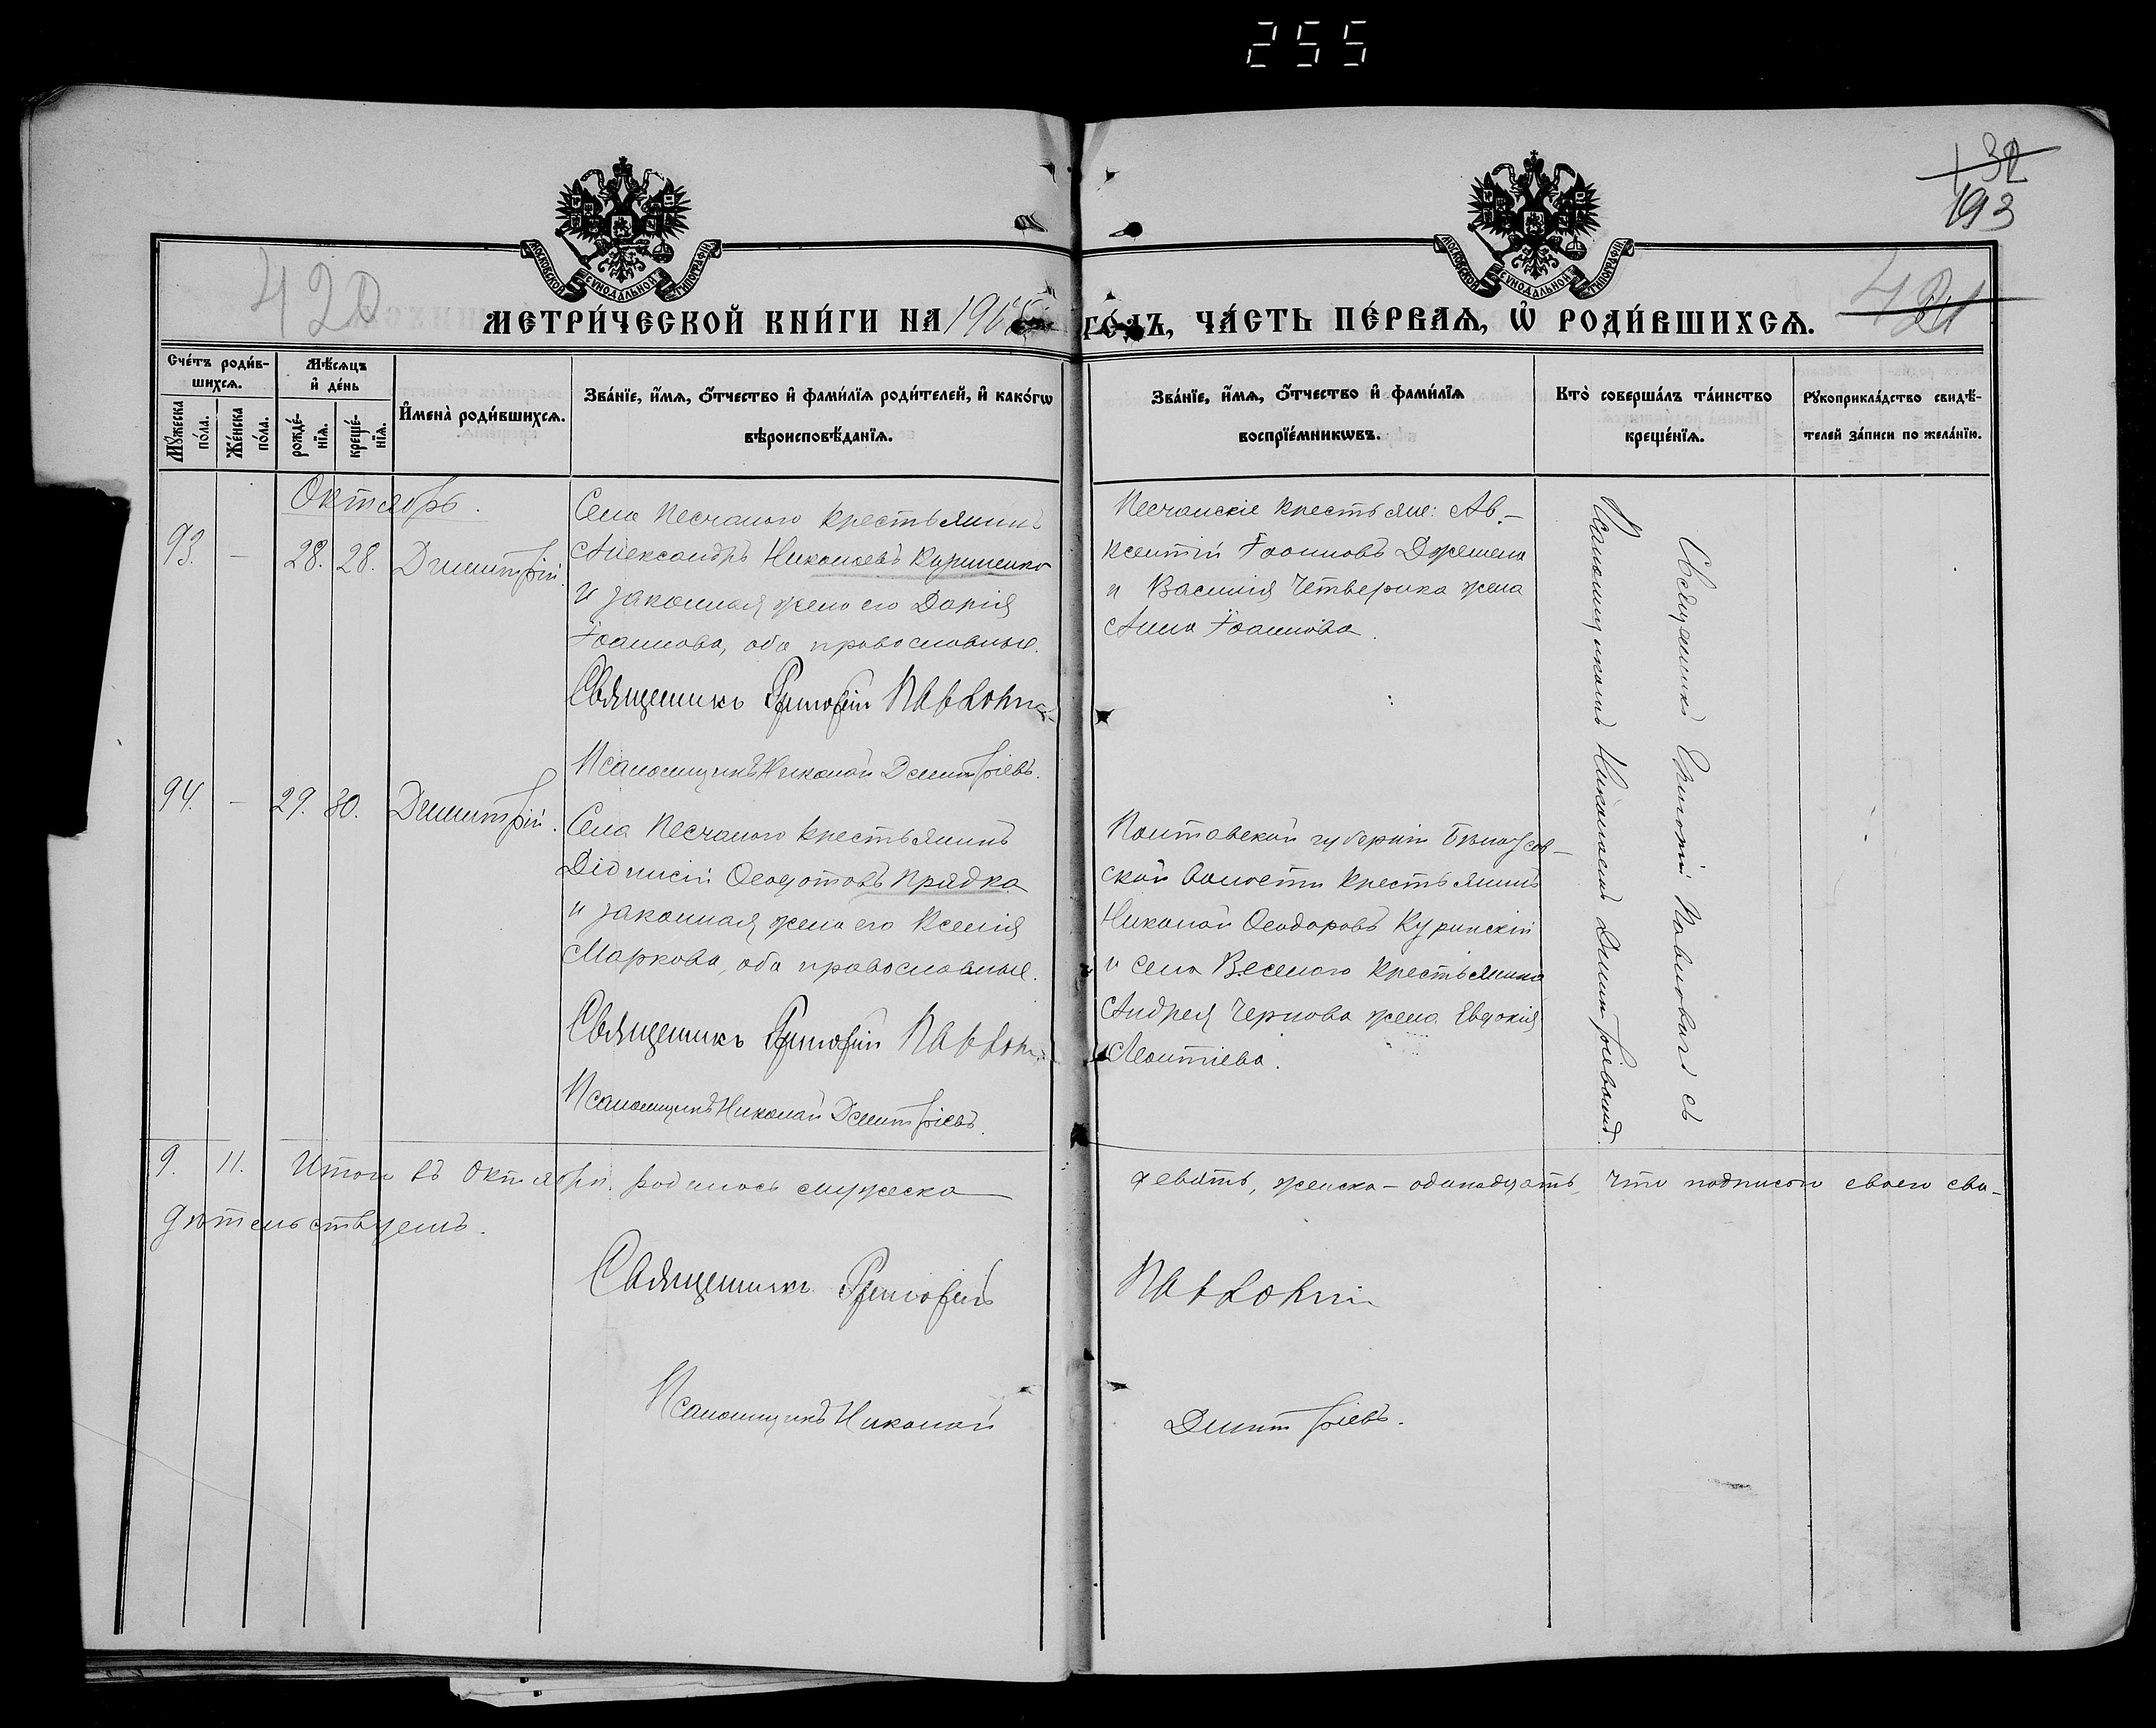 255
132
193
МОСКОВСКОЙ СУНОДАЛЬНОЙ ТИПОГРАФІИ
МОСКОВСКОЙ СУНОДАЛЬНОЙ ТИПОГРАФІИ
420
421
МЕТРИ́ЧЕСКОЙ КНИ́ГИ НА 190 ГО́ДЪ, ЧА́СТЬ ПЕ́РВАѦ, Ѡ҆ РОДИ́ВШИХСѦ.
Сче́тъ роди́в-
шихсѧ.
Мꙋ́жеска по́ла.
Же́нска по́ла.
Мѣ́сѧцъ
и҆ де́нь
рожде́-нїѧ.
креще́-нїѧ.
И҆мена̀ роди́вшихсѧ.
Зва́нїе, и҆́мѧ, ѻ҆́тчество и҆ фами́лїѧ роди́телей, и҆ како́гѡ
вѣроисповѣ́данїѧ.
Зва́нїе, и҆́мѧ, ѻ҆́тчество и҆ фами́лїѧ
воспрїе́мникѡвъ.
Кто̀ соверша́лъ та́инство
креще́нїѧ.
Рꙋкоприкла́дство свидѣ́-
телей за́писи по жела́нїю.
Октябрь.
93. — 28. 28. Димитрій.
Села Песчаного крестьянинъ
Александръ Николаевъ Куриленко
и законная жена его Дарія
Іоаннова, оба православные.
Священникъ Григорій Павлович
Псаломщикъ Николай Дмитріевъ.
Песчанскіе крестьяне: Ав-
ксентій Іоанновъ Джемела
и Василія Четверика жена
Анна Іоаннова.
Священникъ Григорій Павловичъ съ
Псаломщикомъ Николаемъ Димитріевымъ.
94. — 29. 30. Димитрій.
Села Песчаного крестьянинъ
Діонисій Ѳеодотовъ Прядка
и законная жена его Ксенія
Маркова, оба православные.
Священникъ Григорій Павлов
Псаломщикъ Николай Дмитріевъ.
Полтавской губерніи Бѣлоусов-
ской волости крестьянинъ
Николай Ѳеодоровъ Куринскій
и села Веселого крестьянина
Андрея Чернова жена Евдокія
Леонтіева.
9. 11. Итого въ Октябрѣ родилось мужеска — девять, женска — одинадцать, что подписью своею сви-
дѣтельствуемъ.
Священникъ Григорій Павлович
Псаломщикъ Николай Димитріевъ.